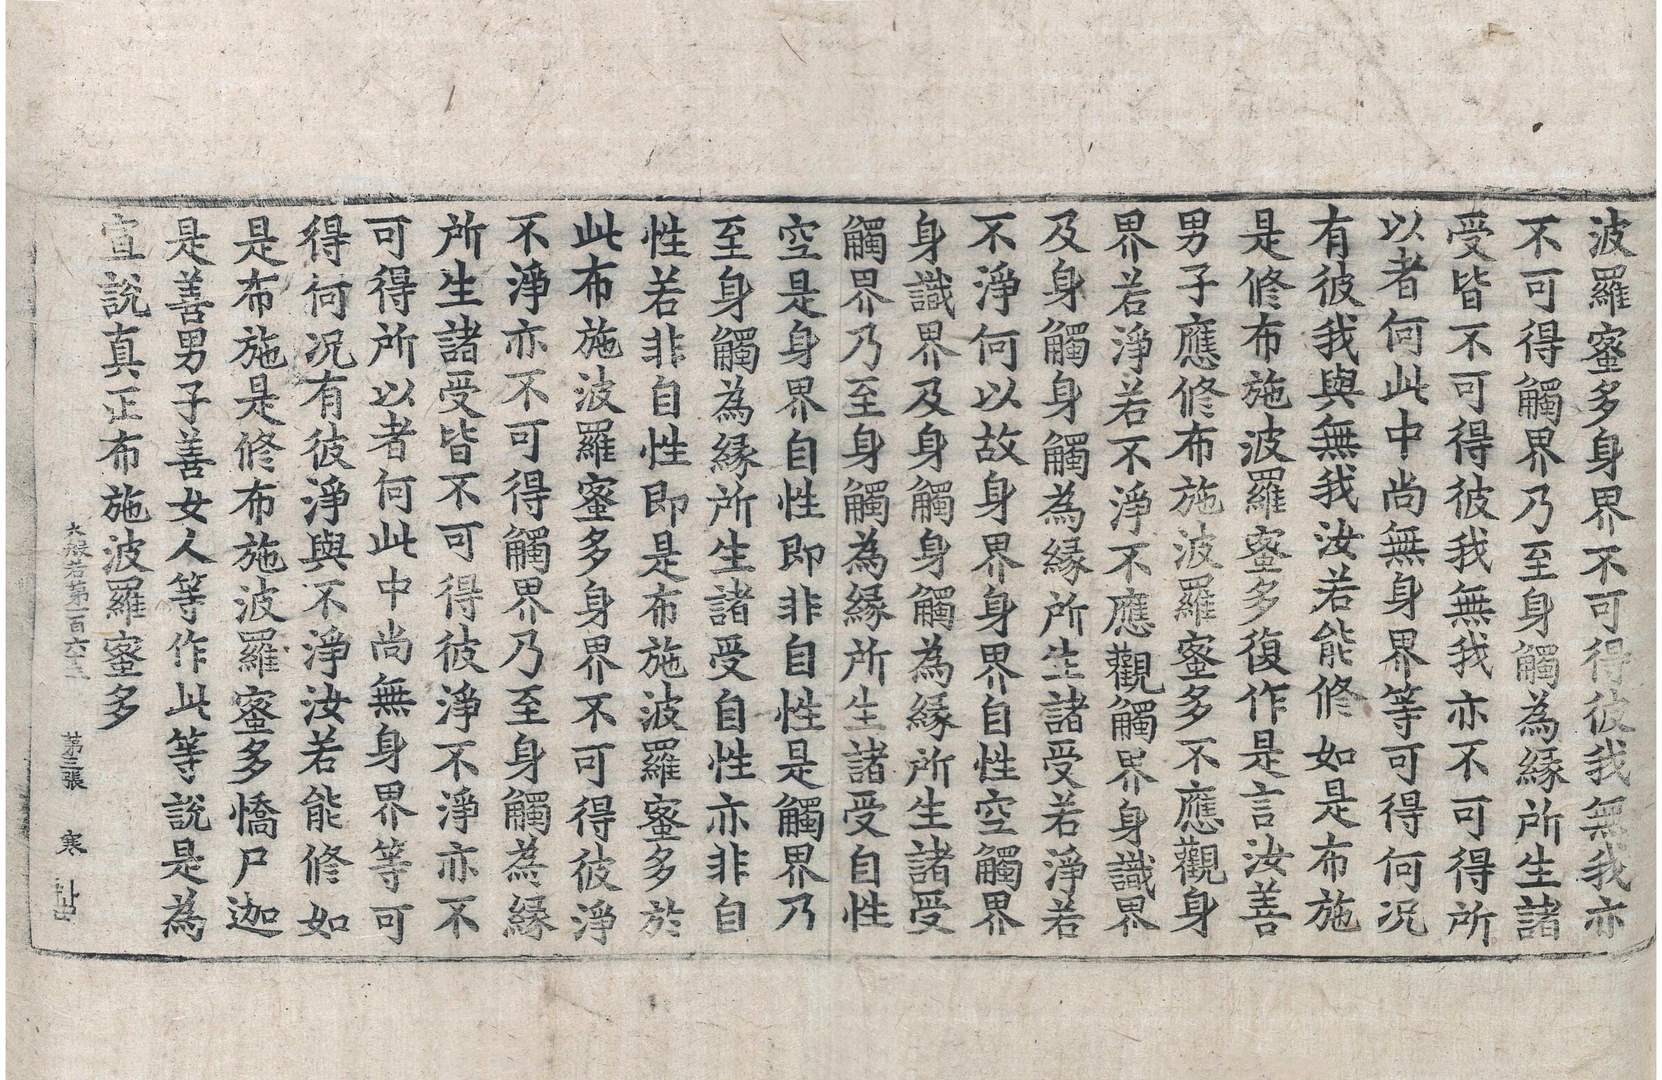 波羅蜜多身界不可得彼我無我亦
不可得觸界乃至身觸為緣所生諸
受皆不可得彼我無我亦不可得所
以者何此中尚無身界等可得何況
有彼我與無我汝若能修如是布施
是修布施波羅蜜多復作是言汝善
男子應修布施波羅蜜多不應觀身
界若淨若不淨不應觀觸界身識界
及身觸身觸為緣所生諸受若淨若
不淨何以故身界身界自性空觸界
身識界及身觸身觸為緣所生諸受
觸界乃至身觸為緣所生諸受自性
空是身界自性即非自性是觸界乃
至身觸為緣所生諸受自性亦非自
性若非自性即是布施波羅蜜多於
此布施波羅蜜多身界不可得彼淨
不淨亦不可得觸界乃至身觸為緣
所生諸受皆不可得彼淨不淨亦不
可得所以者何此中尚無身界等可
得何況有彼淨與不淨汝若能修如
是布施是修布施波羅蜜多憍尸迦
是善男子善女人等作此等說是為
宣說真正布施波羅蜜多
大般若第一百六十 第三張 寒